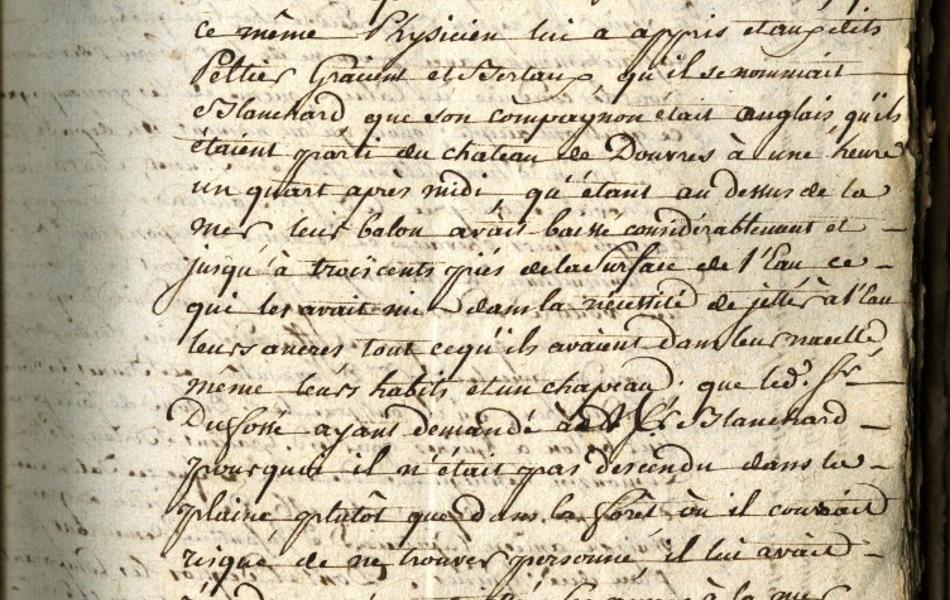 ce même Physicien lui a appris et auxdits
Peltier Gracient et Bertaux, qu'il se nommait
Blanchard que son compagnon était anglais, qu'ils
étaient parti du chateau de Douvres à une heure
un quart après midi, qu'étant au dessus de la
mer leur balon avait baissé considérablement et
jusqu'à troiscents piés de la Surface de l'Eau ce
qui les avait mis dans la nécessité de jetter à l'Eau
leurs ancres tout ce qu'ils avaient dans leur nacelle
même leurs habits et un chapeau. que led. Sr
Dufossé ayant demandé Sr Blanchard
pourquoi il n'était pas descendu dans la
plaine plutôt que dans la forêt où il courait
risque de ne trouver personne, il lui avait
à la mer